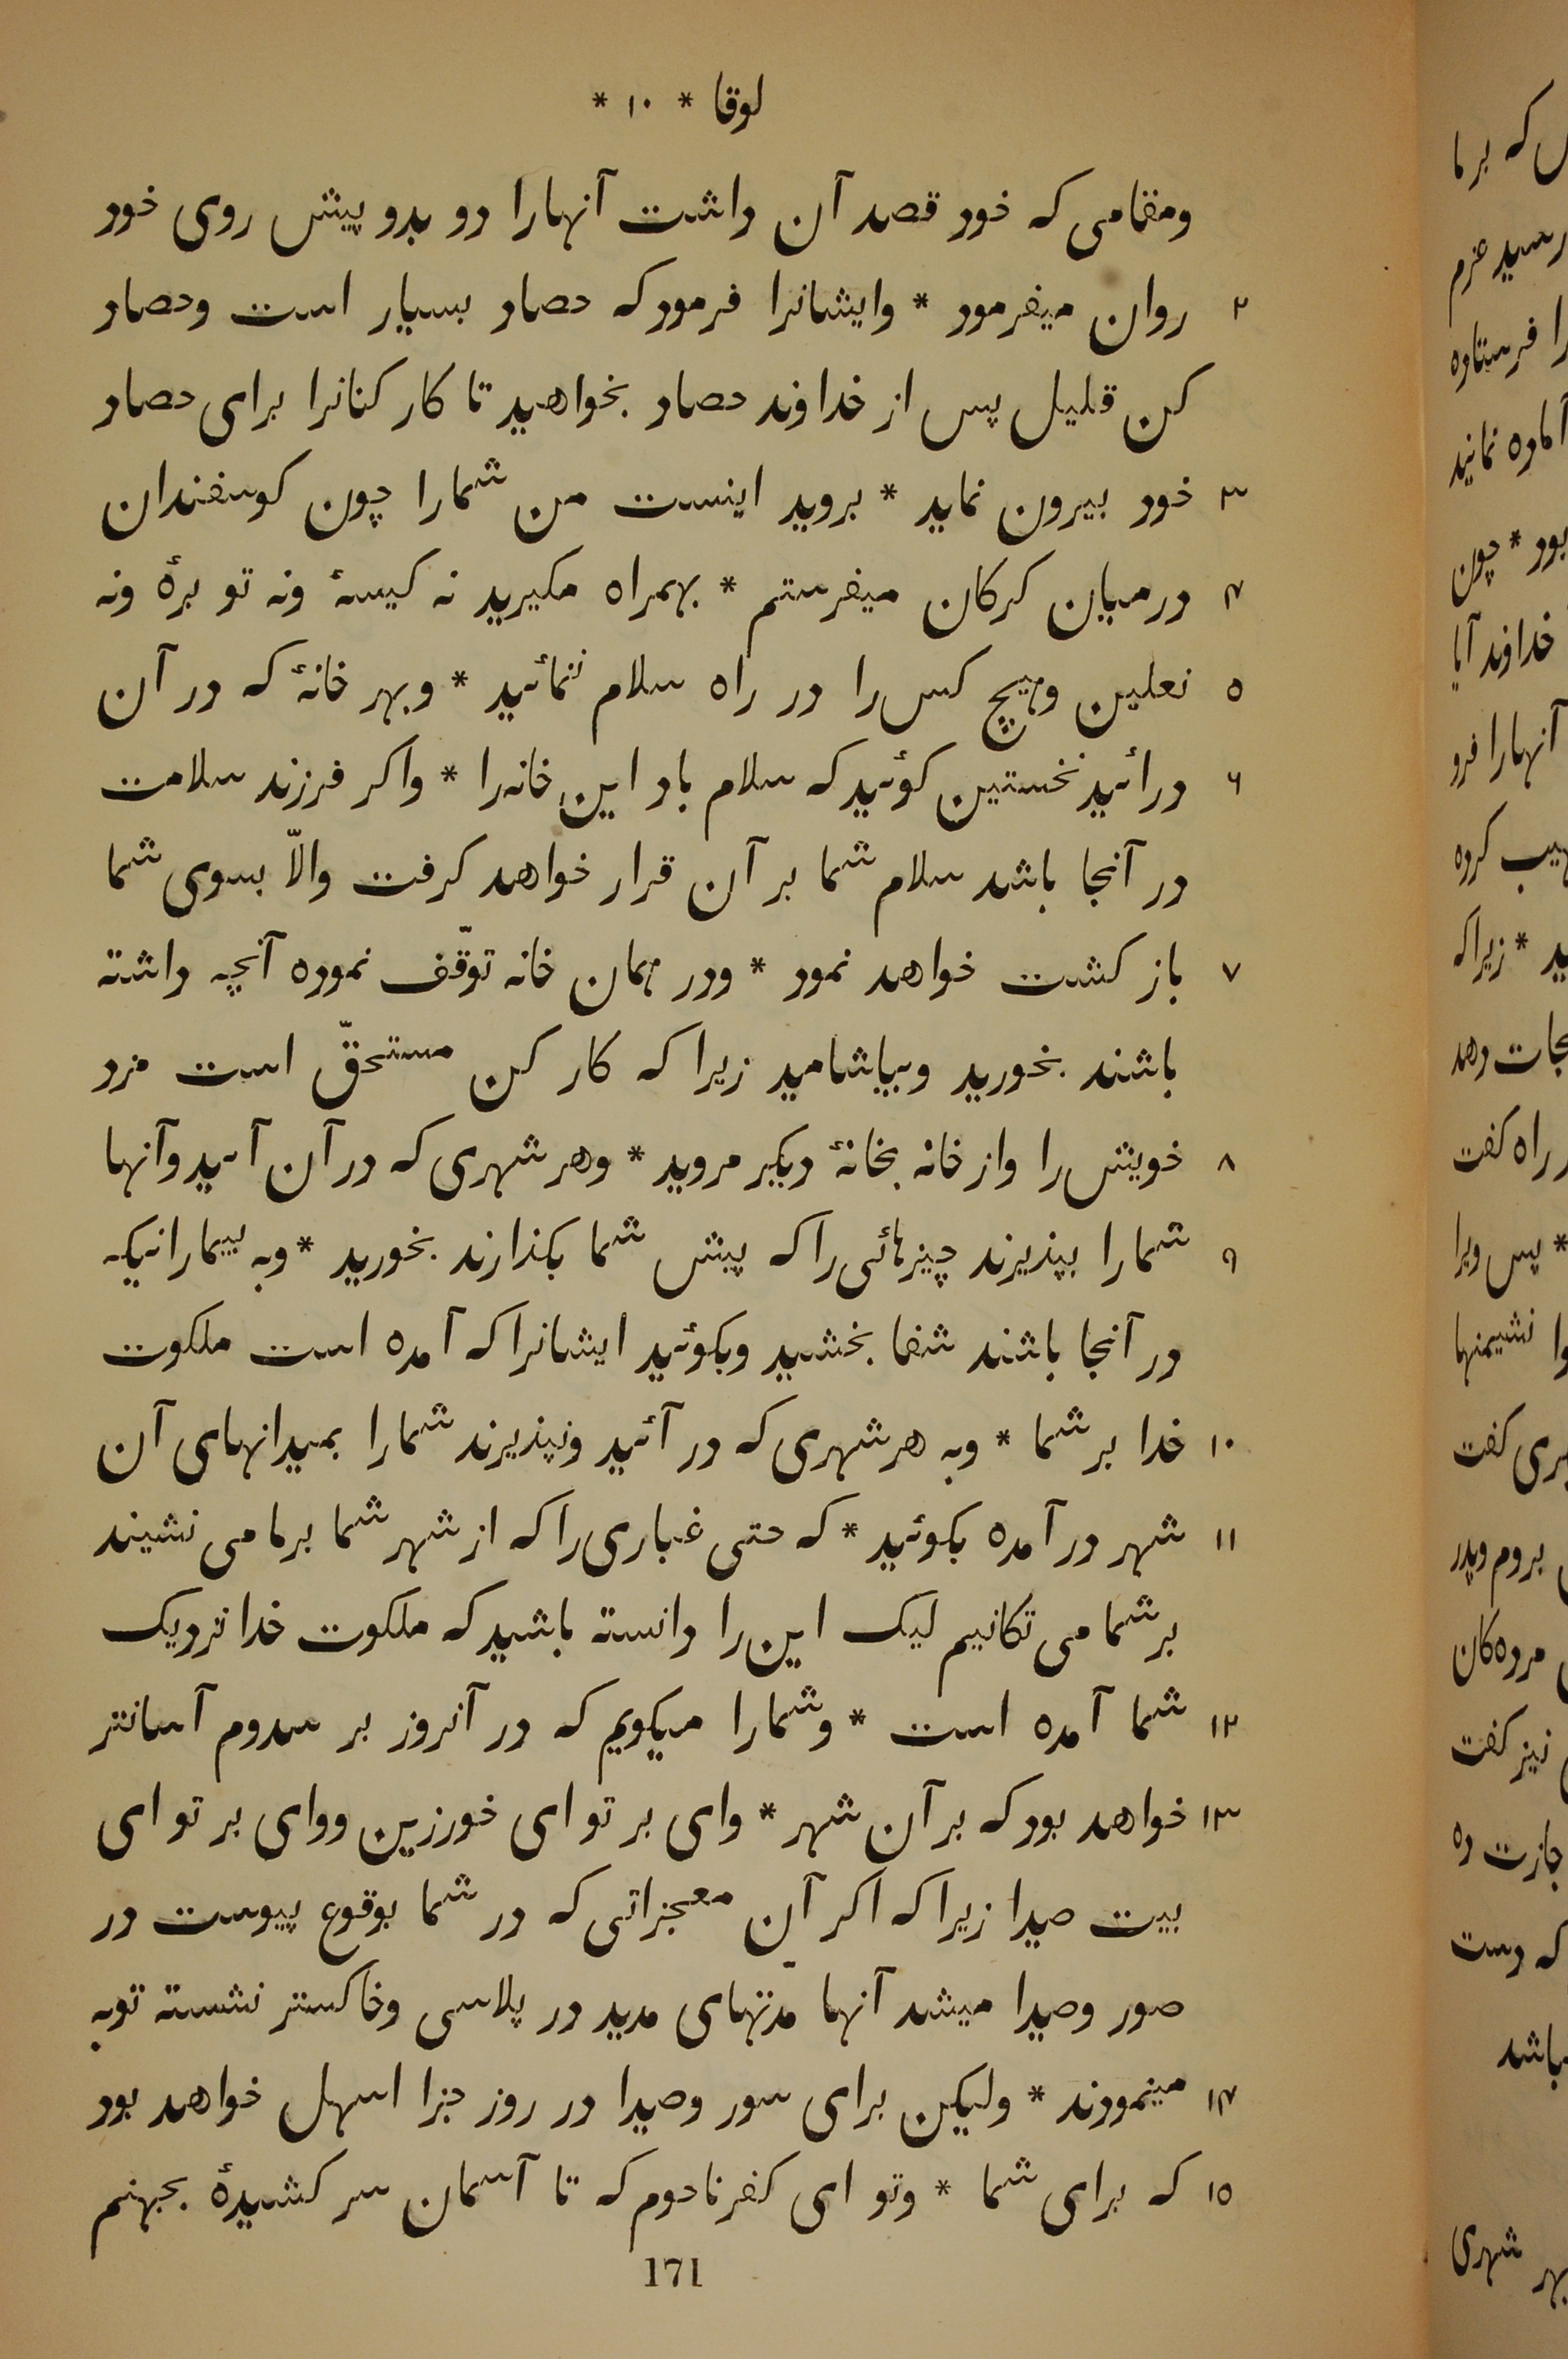 لوقا * ۱۰ *
ومقامی که خود قصد آن داشت آنهارا دو بدو پیش روی خود
۲ روان میفرمود * وایشانرا فرمود که حصاد بسیار است وحصاد
کن قلیل پس از خداوند حصاد بخواهید تا کار کنانرا برای حصاد
۳ خود بیرون نماید * بروید اینست من شمارا چون کوسفندان
۴ درمیان کرکان میفرستم * بهمراه مکیرید نه کیسهٔ ونه تو برهٔ ونه
۵ نعلین وهیچ کس را در راه سلام ننمائید * وبهر خانهٔ که در آن
۶ درائید نخستین کوئید که سلام باد این خانه را * واکر فرزند سلامت
در آنجا باشد سلام شما بر آن قرار خواهد کرفت والّا بسوی شما
۷ باز کشت خواهد نمود * ودر همان خانه توقّف نموده آنچه داشته
باشند بخورید وبیاشامید زیرا که کار کن مستحقّ است مزد
۸ خویش را واز خانه بخانهٔ دیکر مروید * وهر شهری که در آن آئید وآنها
۹ شمارا بپذیرند چیزهائی را که پیش شما بکذارند بخورید * وبه بیمارانیکه
در آنجا باشند شفا بخشید وبکوئید ایشانرا که آمده است ملکوت
۱۰ خدا بر شما * وبه هر شهری که در آئید ونپذیرند شمارا بمیدانهای آن
۱۱ شهر در آمده بکوئید * که حتی غباری را که از شهر شما برما می نشیند
بر شما می تکانیم لیک این را دانسته باشید که ملکوت خدا نزدیک
۱۲ شما آمده است * وشمارا میکویم که در آنروز بر سدوم آسانتر
۱۳ خواهد بود که بر آن شهر * وای بر تو ای خورزین ووای بر تو ای
بیت صیدا زیرا که اکر آن معجزاتی که در شما بوقوع پیوست در
صور وصیدا میشد آنها مدّتهای مدید در پلاسی وخاکستر نشسته توبه
۱۴ مینمودند * ولیکن برای سور وصیدا در روز جزا اسهل خواهد بود
۱۵ که برای شما * وتو ای کفرناحوم که تا آسمان سر کشیدهٔ بجهنم
171
که بر ما
رسید عزم
را فرستاده
آماده نمانید
بود * چون
خداوند آیا
آنهارا فرو
کرده
* زیرا که
دهد
راه کفت
* پس ویرا
نشیمنها
کفت
بروم وپدر
مرده کان
نیز کفت
ده
که دست
باشد
شهری